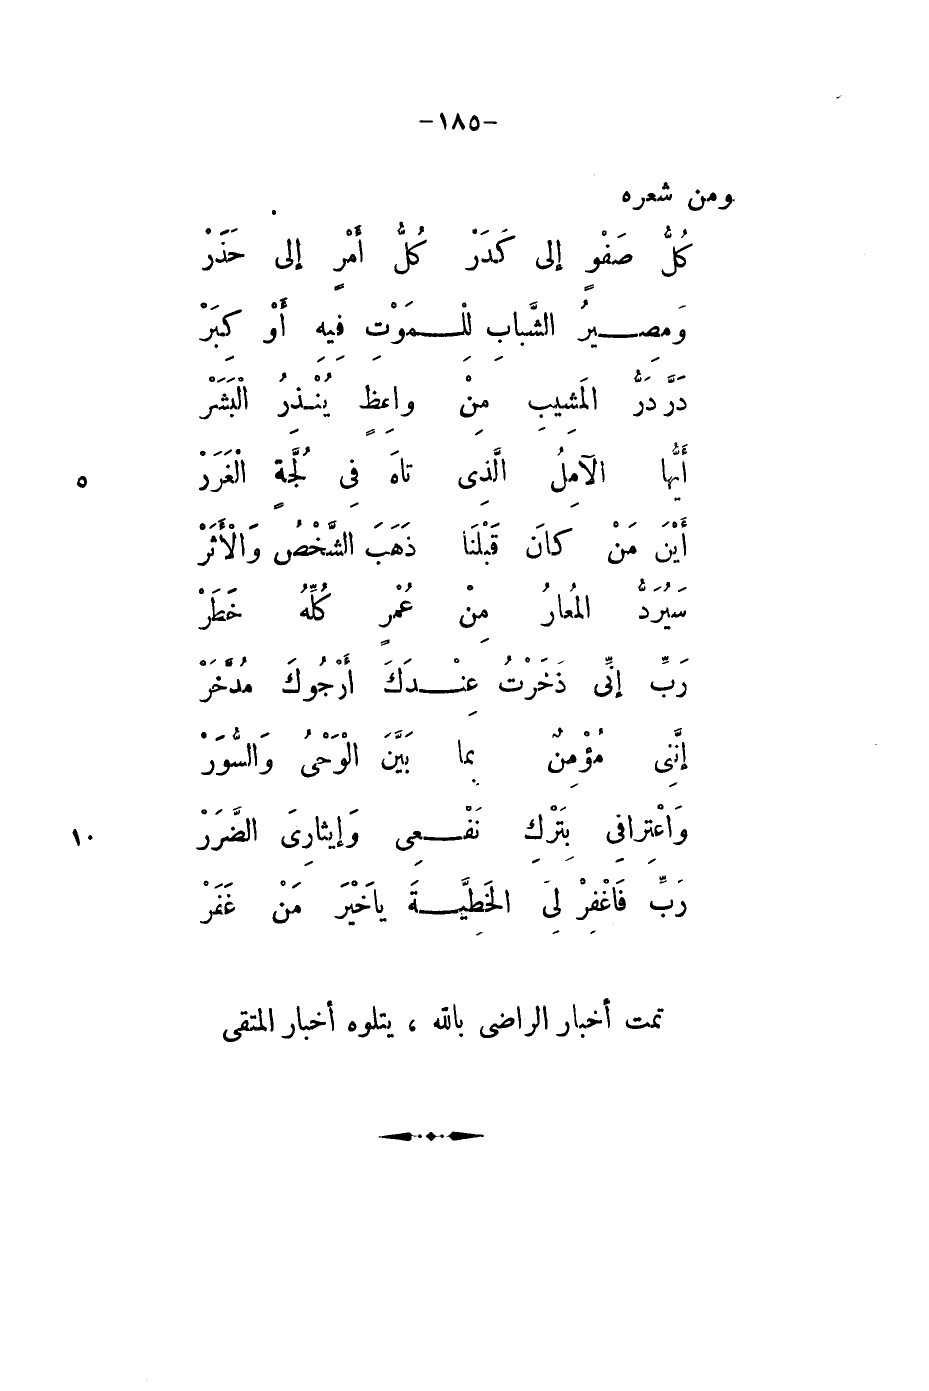 -١٨٥-
ومن شعره
كُلُّ صَفْوٍ إلى كَدَرْ كُلُّ أَمْرٍ إلى حَذَرْ
وَمصِيرُ الشَّبابِ لِلْمَوْتِ فِيهِ أَوْ كِبَرْ
دَرَّ دَرُّ المَشِيبِ مِنْ واعِظٍ يُنْذِرُ الْبَشَرْ
أَيُّها الآمِلُ الَّذِى تاهَ فِى لُجَّةٍ الْغَرَرْ
٥
أَيْنَ مَنْ كانَ قَبْلَنَا ذَهَبَ الشَّخْصُ وَالْأَثَرْ
سَيُرَدُّ المُعارُ مِنْ عُمْرٍ كُلُّهُ خَطَرْ
رَبِّ إنِّى ذَخَرْتُ عِنْدَكَ أَرْجُوكَ مُدَّخَرْ
إنَّنِى مُؤْمِنٌ بِما بَيَّنَ الْوَحْىُ وَالسُّوَرْ
وَاعْتِرافِى بِتَرْكِ نَفْعِى وَإيثارِىَ الضَّرَرْ
١٠
رَبِّ فَاغْفِرْ لِىَ الخَطِيَّةَ ياَخَيْرَ مَنْ غَفَرْ
تمت أخبار الراضى بالله ، يتلوه أخبار المتقى